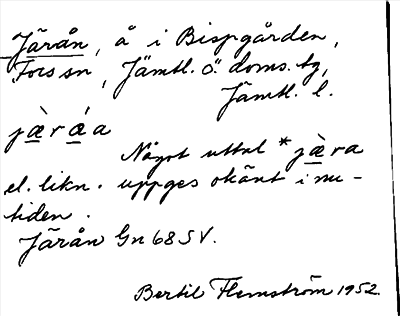 Järån, å i Bispgården,
Fors sn, Jämtl. ö. doms. tg,
Jämtl. l.
jæ̀rǽa
Något uttal *jæ̀ra
el. likn. uppges okänt i nu-
tiden.
Järån Gn 68 SV.
Bertil Flemström 1952.